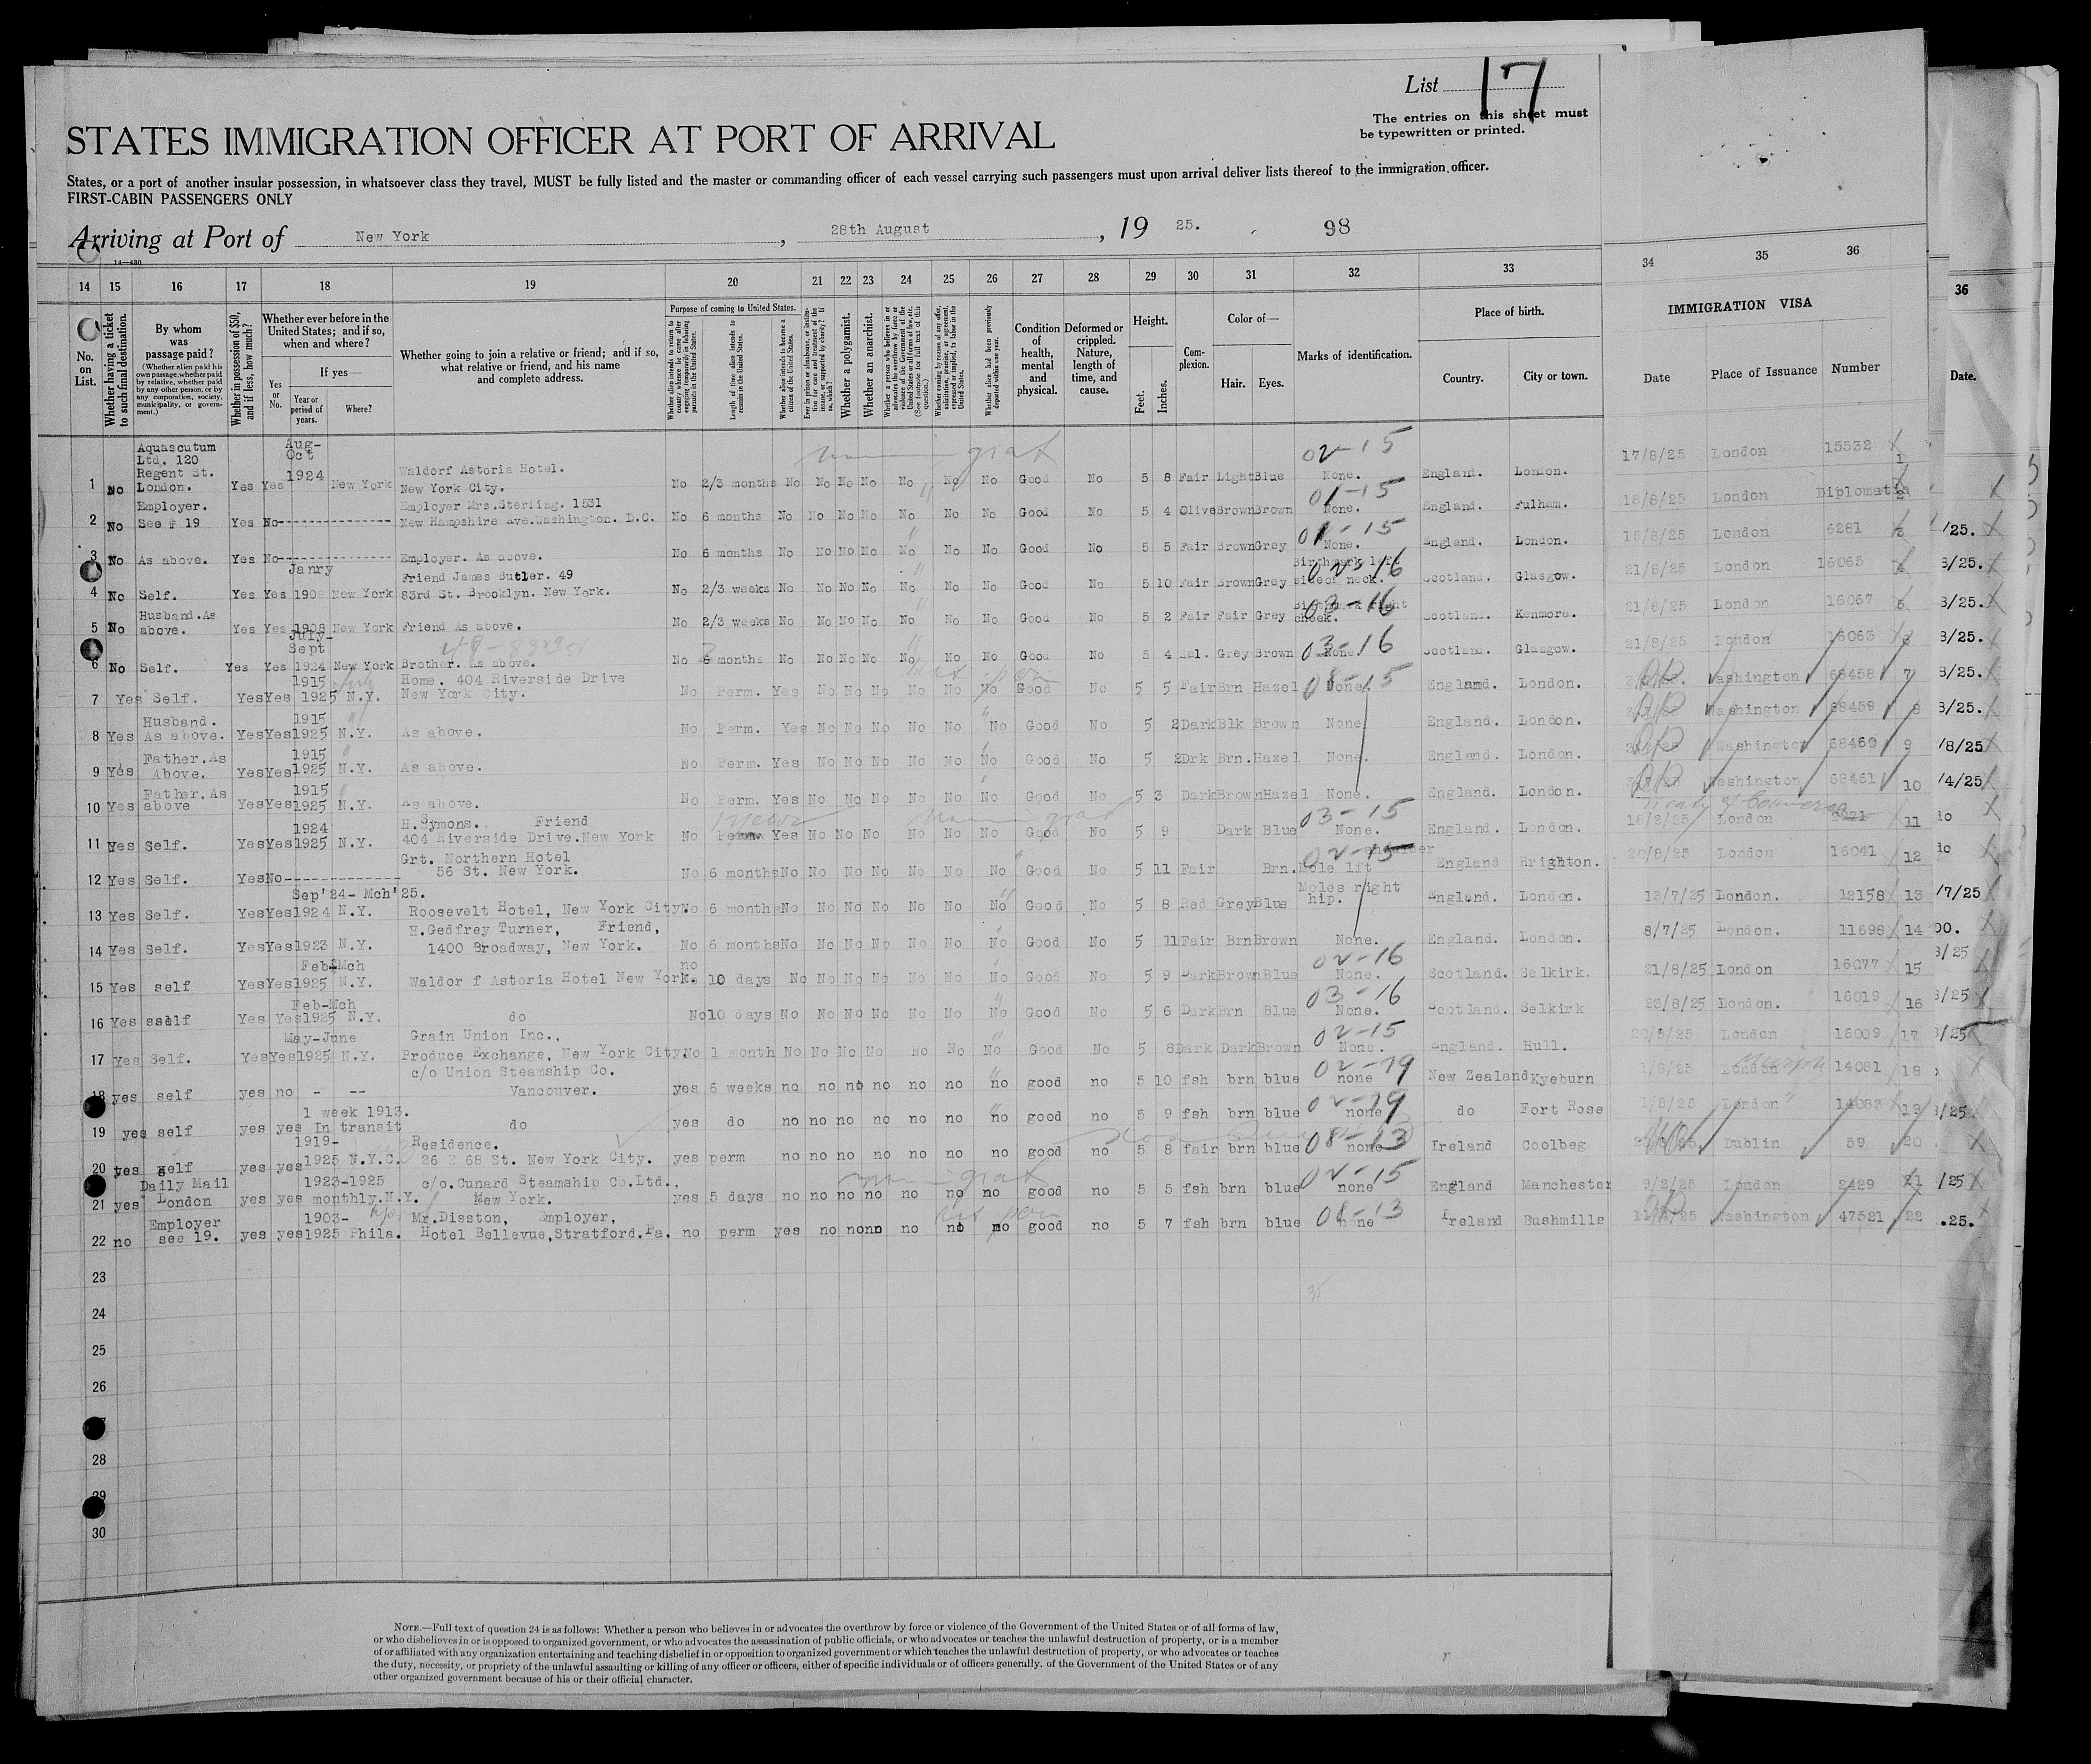 List 17
The entries on this sheet must
be typewritten or printed.
STATES IMMIGRATION OFFICER AT PORT OF ARRIVAL
States, or a port of another insular possession, in whatsoever class they travel, MUST be fully listed and the master or commanding officer of each vessel carrying such passengers must upon arrival deliver lists thereof to the immigration officer.
FIRST-CABIN PASSENGERS ONLY
Arriving at Port of New York, 28th August, 19 25. 98
14—430
14 15 16 17 18 19 20 21 22 23 24 25 26 27 28 29 30 31 32 33 34 35 36
No. on List.
Whether having a ticket to such final destination.
By whom was passage paid?
(Whether alien paid his own passage, whether paid by relative, whether paid by any other person, or by any corporation, society, municipality, or government.)
Whether in possession of $50, and if less, how much?
Whether ever before in the United States; and if so, when and where?
If yes—
Yes or No.
Year or period of years.
Where?
Whether going to join a relative or friend; and if so, what relative or friend, and his name and complete address.
Purpose of coming to United States.
Whether alien intends to return to country whence he came after engaging temporarily in laboring pursuits in the United States.
Length of time alien intends to remain in the United States.
Whether alien intends to become a citizen of the United States.
Whether a polygamist.
Whether an anarchist.
Condition of health, mental and physical.
Deformed or crippled. Nature, length of time, and cause.
Height.
Feet. Inches.
Complexion.
Color of—
Hair. Eyes.
Marks of identification.
Place of birth.
Country. City or town.
IMMIGRATION VISA
Date Place of Issuance Number
36
Date.
Aquascutum Ltd. 120 Regent St. London.
1 No Yes Yes Aug-Oct 1924 New York Waldorf Astoria Hotel. New York City. No 2/3 months No No No No No No No Good No 5 8 Fair Light Blue None. 02-15 England. London. 17/8/25 London 15532 1
2 No Employer. See # 19 Yes No Employer Mrs.Sterling. 1531 New Hampshire Ave.Washington. D.C. No 6 months No No No No No No No Good No 5 4 Olive Brown Brown None. 01-15 England. Fulham. 18/8/25 London Diplomatic 2
3 No As above. Yes No Employer. As above. No 6 months No No No No No No No Good No 5 5 Fair Brown Grey None. 01-15 England. London. London 6281 3
4 No Self. Yes Yes Janry 1908 New York Friend James Butler. 49 83rd St. Brooklyn. New York. No 2/3 weeks No No No No No No No Good No 5 10 Fair Brown Grey Birthmark left side of neck. 02-16 Scotland. Glasgow. 21/8/25 London 16065 4
5 No Husband.As above. Yes Yes 1908 New York Friend As above. No 2/3 weeks No No No No No No No Good No 5 2 Fair Fair Grey cheek. 03-16 Scotland. Kenmore. 21/8/25 London 16067 5
6 No Self. Yes Yes July-Sept 1924 New York Brother. As above. No months No No No No No No No Good No 5 4 Sal. Grey Brown None 03-16 Scotland. Glasgow. 21/8/25 London 16063 6
7 Yes Self. Yes Yes 1915 1925 N.Y. Home. 404 Riverside Drive New York City. No Perm. Yes No No No No No No Good No 5 5 Fair Brn Hazel None. 08-15 England. London. Washington 68458 7
8 Yes Husband. As above. Yes Yes 1915 1925 N.Y. As above. No Perm. Yes No No No No No No Good No 5 2 Dark Blk Brown None England. London. Washington 68459 8
9 Yes Father.As Above. Yes Yes 1915 1925 N.Y. As above. No Perm. Yes No No No No No No Good No 5 2 Drk Brn. Hazel None. England. London. Washington 68460 9
10 Yes Father.As above Yes Yes 1915 1925 N.Y. As above. No Perm. Yes No No No No No No Good No 5 3 Dark Brown Hazel None. England. London. Washington 68461 10
11 Yes Self. Yes Yes 1924 1925 N.Y. H.Symons. Friend 404 Riverside Drive.New York No Perm. Yes No No No No No No Good No 5 9 Dark Blue None. 03-15 England. London. 18/2/25 London 11
12 Yes Self. Yes No Grt. Northern Hotel 56 St. New York. No 6 months No No No No No No No Good No 5 11 Fair Brn. Mole lft shoulder 02-15 England Brighton. 20/8/25 London 16041 12
13 Yes Self. Yes Yes Sep'24- Mch'25. 1924 N.Y. Roosevelt Hotel, New York City. No 6 months No No No No No No No Good No 5 8 Red Grey Blue Moles right hip. England. London. 13/7/25 London. 12158 13
14 Yes Self. Yes Yes 1923 N.Y. H.Gedfrey Turner, Friend, 1400 Broadway, New York. No 6 months No No No No No No No Good No 5 11 Fair Brn Brown None. England. London. 8/7/25 London. 11698 14
15 Yes self Yes Yes Feb&Mch 1925 N.Y. Waldor f Astoria Hotel New York. no 10 days No No No No No No No Good No 5 9 Dark Brown Blue None. 02-16 Scotland. Selkirk. 21/8/25 London 16077 15
16 Yes self Yes Yes Feb-Mch 1925 N.Y. do No 10 days No No No No No No No Good No 5 6 Dark Brn Blue None. 03-16 Scotland. Selkirk 23/8/25 London. 16019 16
17 Yes Self. Yes Yes May-June 1925 N.Y. Grain Union Inc., Produce Exchange, New York City. No 1 month No No No No No No No Good No 5 8 Dark Dark Brown None. 02-15 England. Hull. 20/8/25 London 16009 17
18 yes self yes no - -- c/o Union Steamship Co. Vancouver. yes 6 weeks no no no no no no no good no 5 10 fsh brn blue none 02-19 New Zealand Kyeburn 1/8/25 London 14081 18
19 yes self yes yes 1 week 1913. In transit do yes do no no no no no no no good no 5 9 fsh brn blue none 02-19 do Fort Rose 1/8/25 London 14083 19
20 yes self yes yes 1919-1925 N.Y.C. Residence. 26 E 68 St. New York City. yes perm no no no no no no no good no 5 8 fair brn blue none 08-13 Ireland Coolbeg Dublin 59 20
21 yes Daily Mail London yes yes 1923-1925 monthly.N.Y. c/o.Cunard Steamship Co.Ltd., New York. yes 5 days no no no no no no no good no 5 5 fsh brn blue none 02-15 England Manchester 9/2/25 London 2429 21
22 no Employer see 19. yes yes 1903-1925 Phila. Mr.Disston, Employer, Hotel Bellevue,Stratford.Pa. no perm yes no no no no no no good no 5 7 fsh brn blue none 08-13 Ireland Bushmills Washington 47521 22
23
24
25
26
28
29
30
NOTE.—Full text of question 24 is as follows: Whether a person who believes in or advocates the overthrow by force or violence of the Government of the United States or of all forms of law,
or who disbelieves in or is opposed to organized government, or who advocates the assassination of public officials, or who advocates or teaches the unlawful destruction of property, or is a member
of or affiliated with any organization entertaining and teaching disbelief in or opposition to organized government or which teaches the unlawful destruction of property, or who advocates or teaches
the duty, necessity, or propriety of the unlawful assaulting or killing of any officer or officers, either of specific individuals or of officers generally, of the Government of the United States or of any
other organized government because of his or their official character.